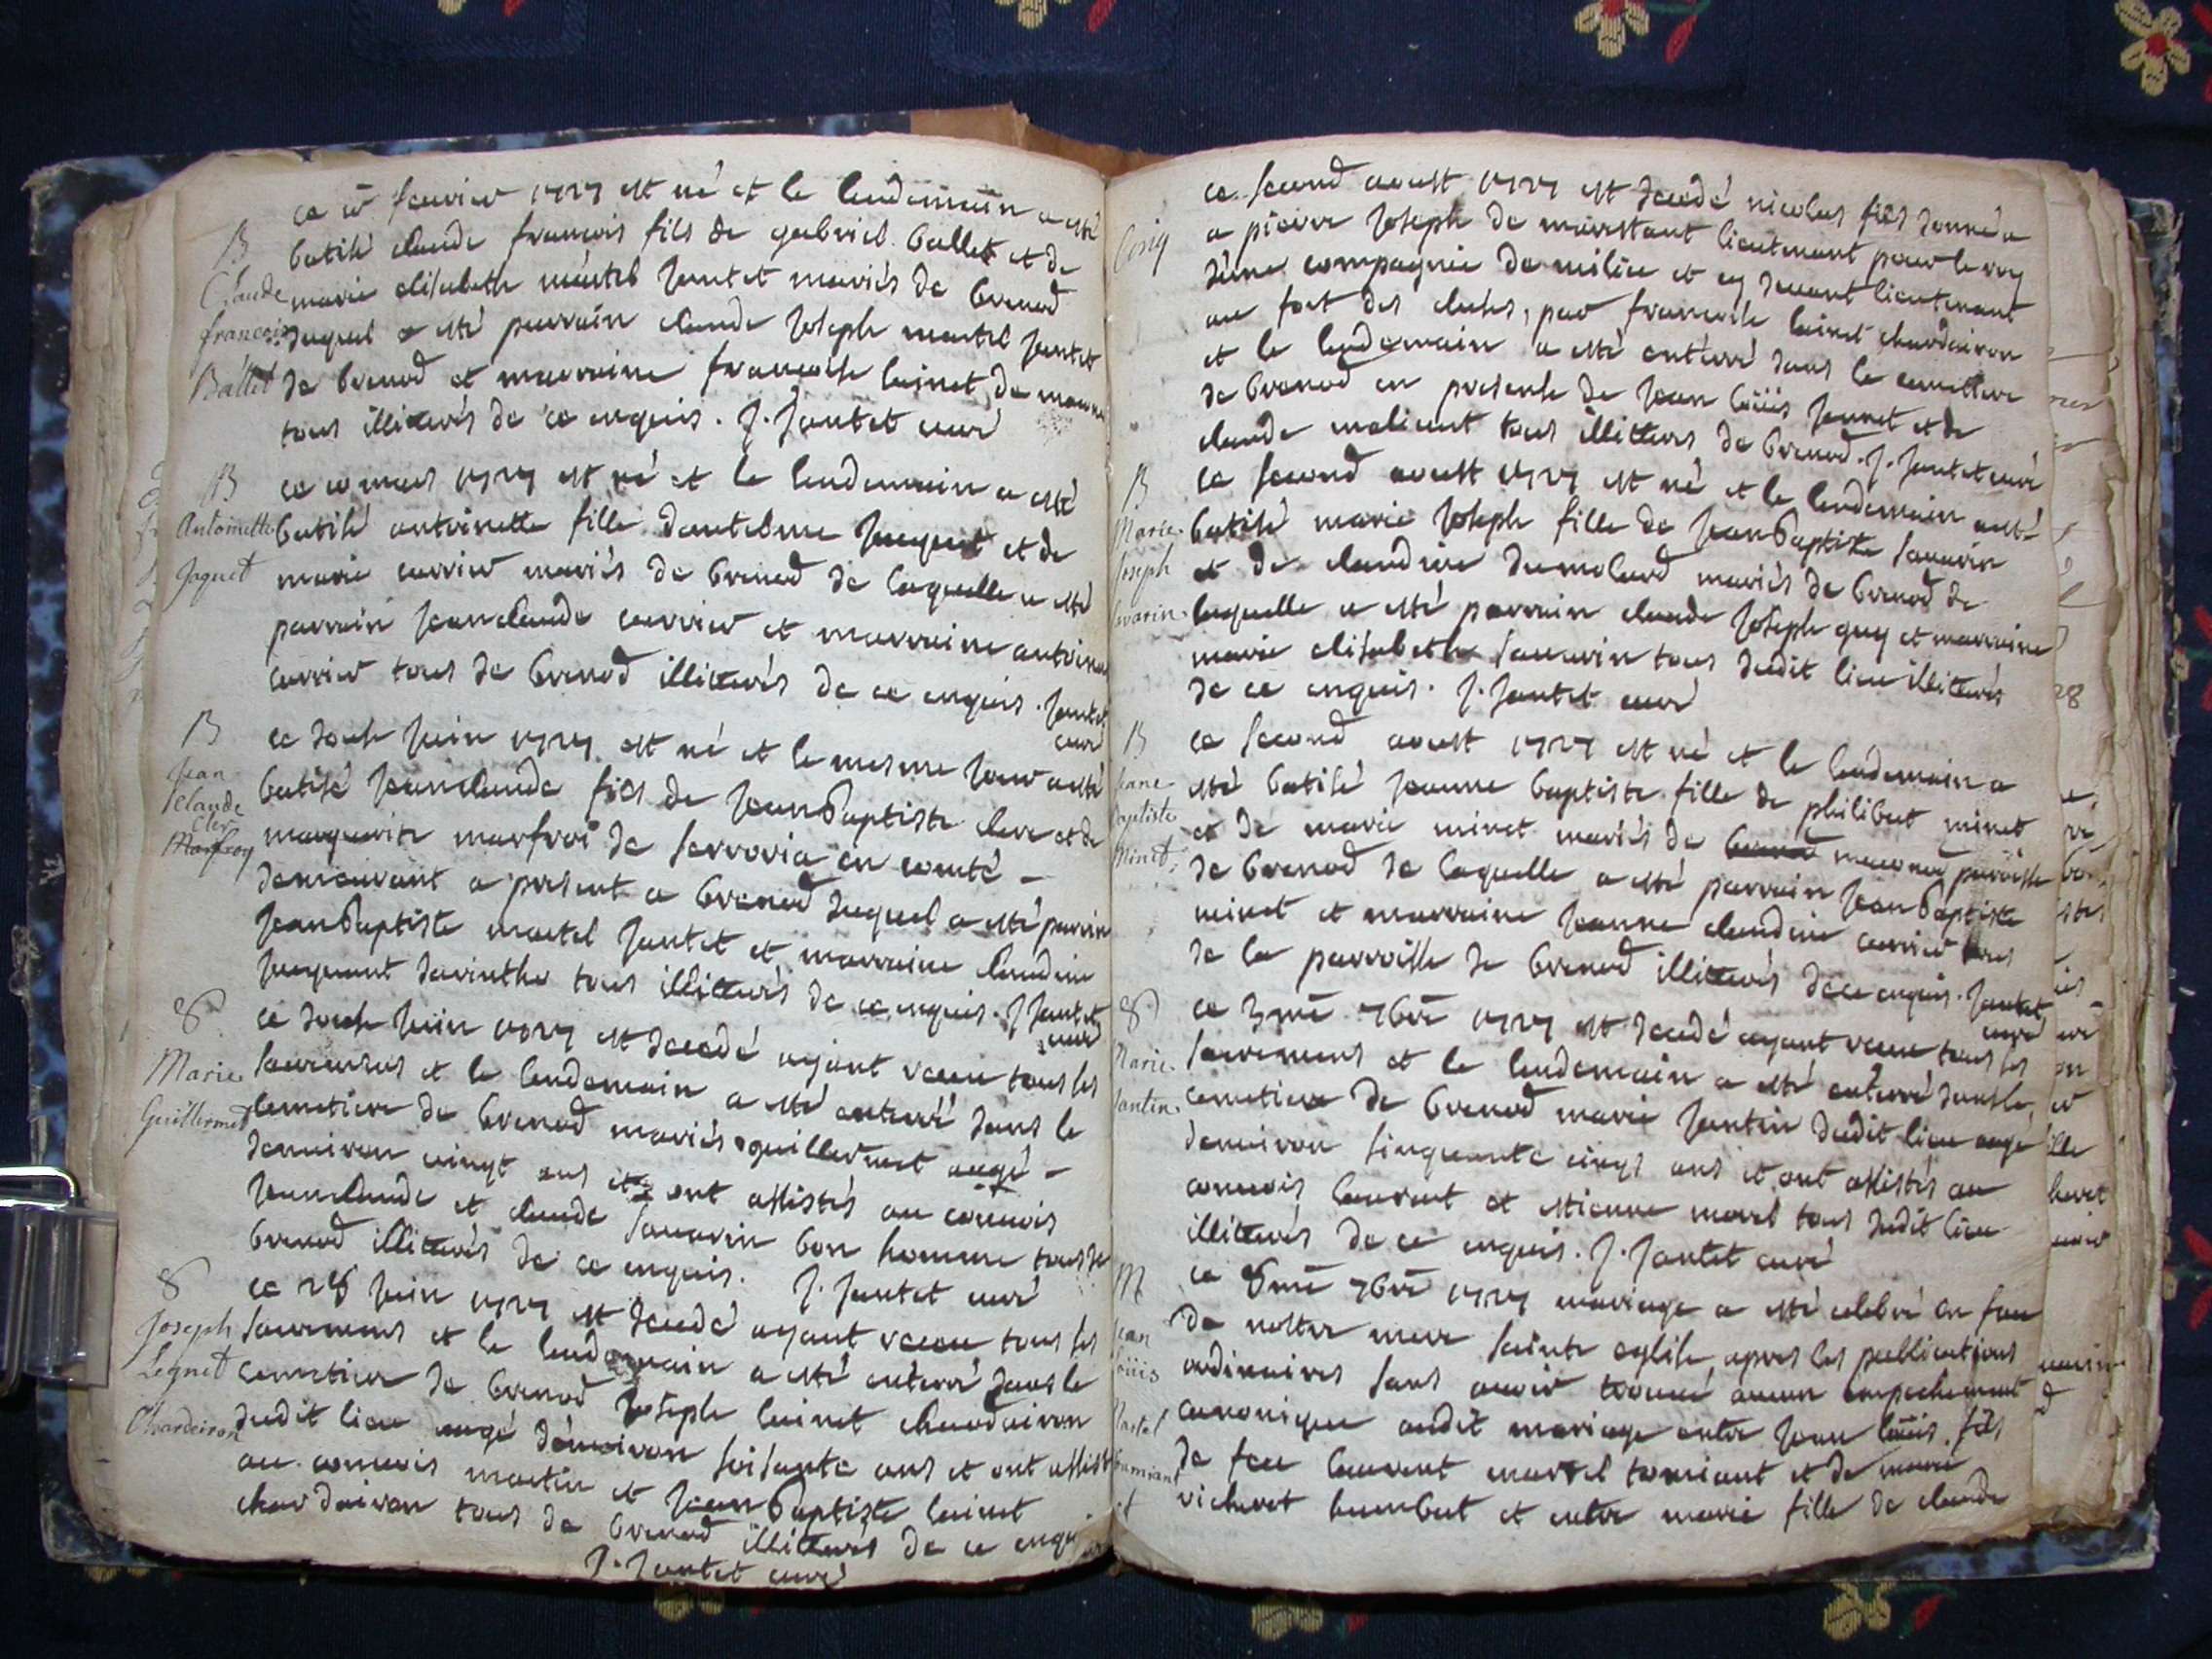 ce feurier 1727 est né et le lendemain a esté
B batisé claude francois fils de gabriel ballet et de
Claude marie elisabeth martel jantet mariés de brenod
francois duquel a esté parrain claude joseph martel jantet
Ballet de brenod et marraine francoise luinet de
tous illiterés de ce enquis. J. Jantet curé
B ce mars 1727 est né et le lendemain a esté
Antoinette batisé antoinette fille dantelme jacquet et de
Jaquet marie carrier mariés de brenod de laquelle a esté
parrain jean claude carrier et marraine
carrier tous de brenod illiterés de ce enquis. Jantet
curé
B ce douse juin 1727 est né et le mesme jour a esté
Jean Claude batisé jean claude fils de jean baptiste clerc et de
Clerc Marfroy marguerite marfroi de serrovia en comté
demeurant a present a brenod duquel a esté parrain
jean baptiste martel jantet et marraine claudine
tous illiterés de ce enquis. J Jantet
curé
ce douse juin 1727 est decedé ayant receu tous ses
Marie sacremens et le lendemain a esté enterré dans le
Guillermet cemetiere de brenod guillermet aagé
denuiron vingt ans et ont assistés au conuois
jean claude et claude sauarin bon homme tous de
brenod illiterés de ce enquis. J. Jantet curé
ce 28 juin 1727 est decedé ayant receu tous ses
Joseph sacremens et le lendemain a esté enterré dans le
Legnet cemetiere de brenod joseph luinet chardeiron
Chardeiron dudit lieu aagé denuiron soisante ans et ont assistés
au conuois martin et jean baptiste luinet
chardeiron tous de brenod illiterés de ce enquis
J. Jantet curé
ce second aoust 1727 est decedé nicolas fils donné a
a pierre joseph de marestant lieutenant pour le roy
dune compagnie de milice et cy deuant lieutenant
au fort des cluses, par francoise luinet chardeiron
et le lendemain a esté enterré dans le cemetiere
de brenod en presense de jean loüis jannet et de
claude tous illiterés de brenod. J. Jantet curé
B ce second aoust 1727 est né et le lendemain a esté
Marie batisé marie joseph fille de jean baptiste sauarin
Joseph et de claudine dumolard mariés de brenod de
Savarin laquelle a esté parrain claude joseph guy et marraine
marie elisabeth sauarin tous dudit lieu illiterés
de ce enquis. J. Jantet curé
B ce second aoust 1727 est né et le lendemain a
Jeane esté batisé jeanne baptiste fille de philibert minet
Baptiste et de marie minet mariés de brenod paroisse
Minet de brenod de laquelle a esté parrain jean baptiste
minet et marraine jeanne claudine carrier tous
de la parroisse de brenod illiterés de ce enquis. Jantet
curé
ce 3me 7bre 1727 est decedé ayant receu tous ses
Marie sacremens et le lendemain a esté enterré dans le
Jantin cemetiere de brenod marie jantin dudit lieu aagé
denuiron sinquante cinqs ans et ont assistés au
conuois laurent et estienne morel tous dudit lieu
illiterés de ce enquis. J. Jantet curé
M ce 8me 7bre 1727 mariage a esté celebré en face
Jean de nostre mere sainte eglise, apres les publications
loüis ordinaires sans auoir trouué aucun empechement
Martel canonique audit mariage entre jean loüis fils
de feu laurent martel tomiant et de marie
et richeret humbert et entre marie fille de claude